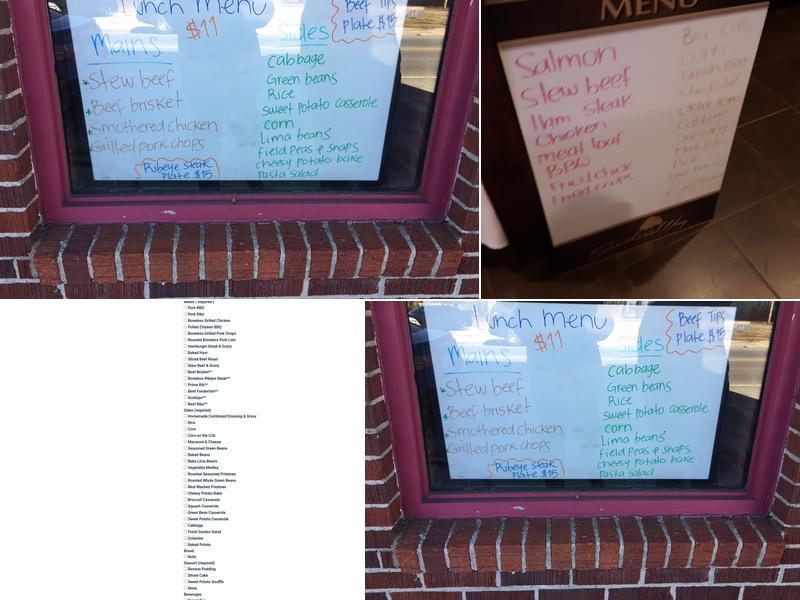 Lunch Menu
$11
Beef Tips
Plate $15
Mains
Sides
Stew beef
Beef brisket
Smothered chicken
Grilled pork chops
Ribeye steak
Plate $15
Cabbage
Green beans
Rice
sweet potato casserole
corn
Lima beans
field peas & snaps
cheesy potato bake
pasta salad
MENU
Salmon
Stew beef
Ham Steak
Chicken
meat loaf
BBQ
Fried chick
Fried crops
Corn
Green Bean
Meats (required)
Pork BBQ
Pork Ribs
Boneless Grilled Chicken
Pulled Chicken BBQ
Boneless Grilled Pork Chops
Roasted Boneless Pork Loin
Hamburger Steak & Gravy
Baked Ham
Sliced Beef Roast
Stew Beef & Gravy
Beef Brisket**
Boneless Ribeye Steak**
Prime Rib**
Beef Tenderloin**
Scallops**
Beef Ribs**
Sides (required)
Homemade Cornbread Dressing & Gravy
Rice
Corn
Corn on the Cob
Macaroni & Cheese
Seasoned Green Beans
Baked Beans
Baby Lima Beans
Vegetable Medley
Roasted Seasoned Potatoes
Roasted Whole Green Beans
Real Mashed Potatoes
Cheesy Potato Bake
Broccoli Casserole
Squash Casserole
Green Bean Casserole
Sweet Potato Casserole
Cabbage
Fresh Garden Salad
Coleslaw
Baked Potato
Bread
Rolls
Dessert (required)
Banana Pudding
Sliced Cake
Sweet Potato Soufflé
None
Beverages
Lunch Menu
$11
Beef Tips
Plate $15
Mains
Sides
Stew beef
Beef brisket
Smothered chicken
Grilled pork chops
Ribeye steak
Plate $15
Cabbage
Green beans
Rice
sweet potato casserole
corn
Lima beans
field peas & snaps
cheesy potato bake
pasta salad